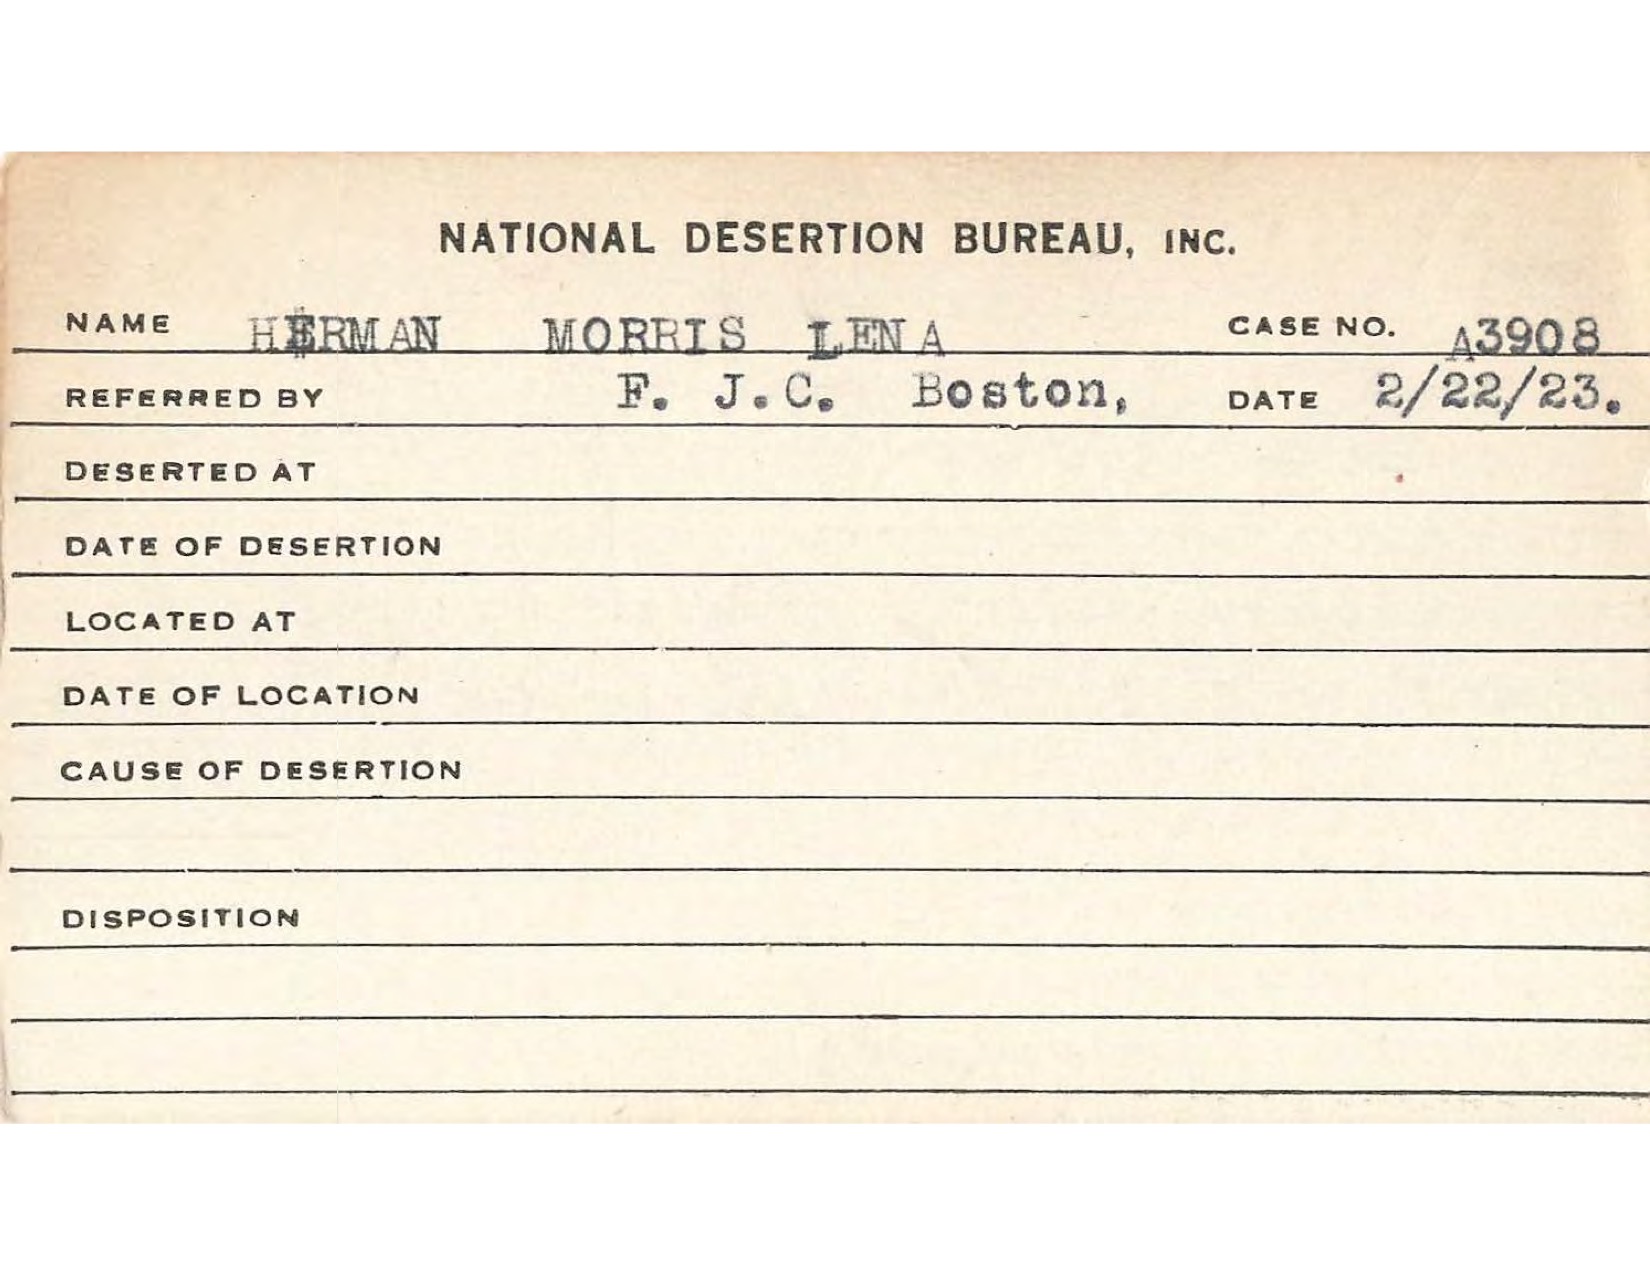 NATIONAL DESERTION BUREAU, INC.
NAME HERMAN MORRIS LENA CASE NO. A3908
REFERRED BY F. J.C. Boston, DATE 2/22/23.
DESERTED AT
DATE OF DESERTION
LOCATED AT
DATE OF LOCATION
CAUSE OF DESERTION
DISPOSITION